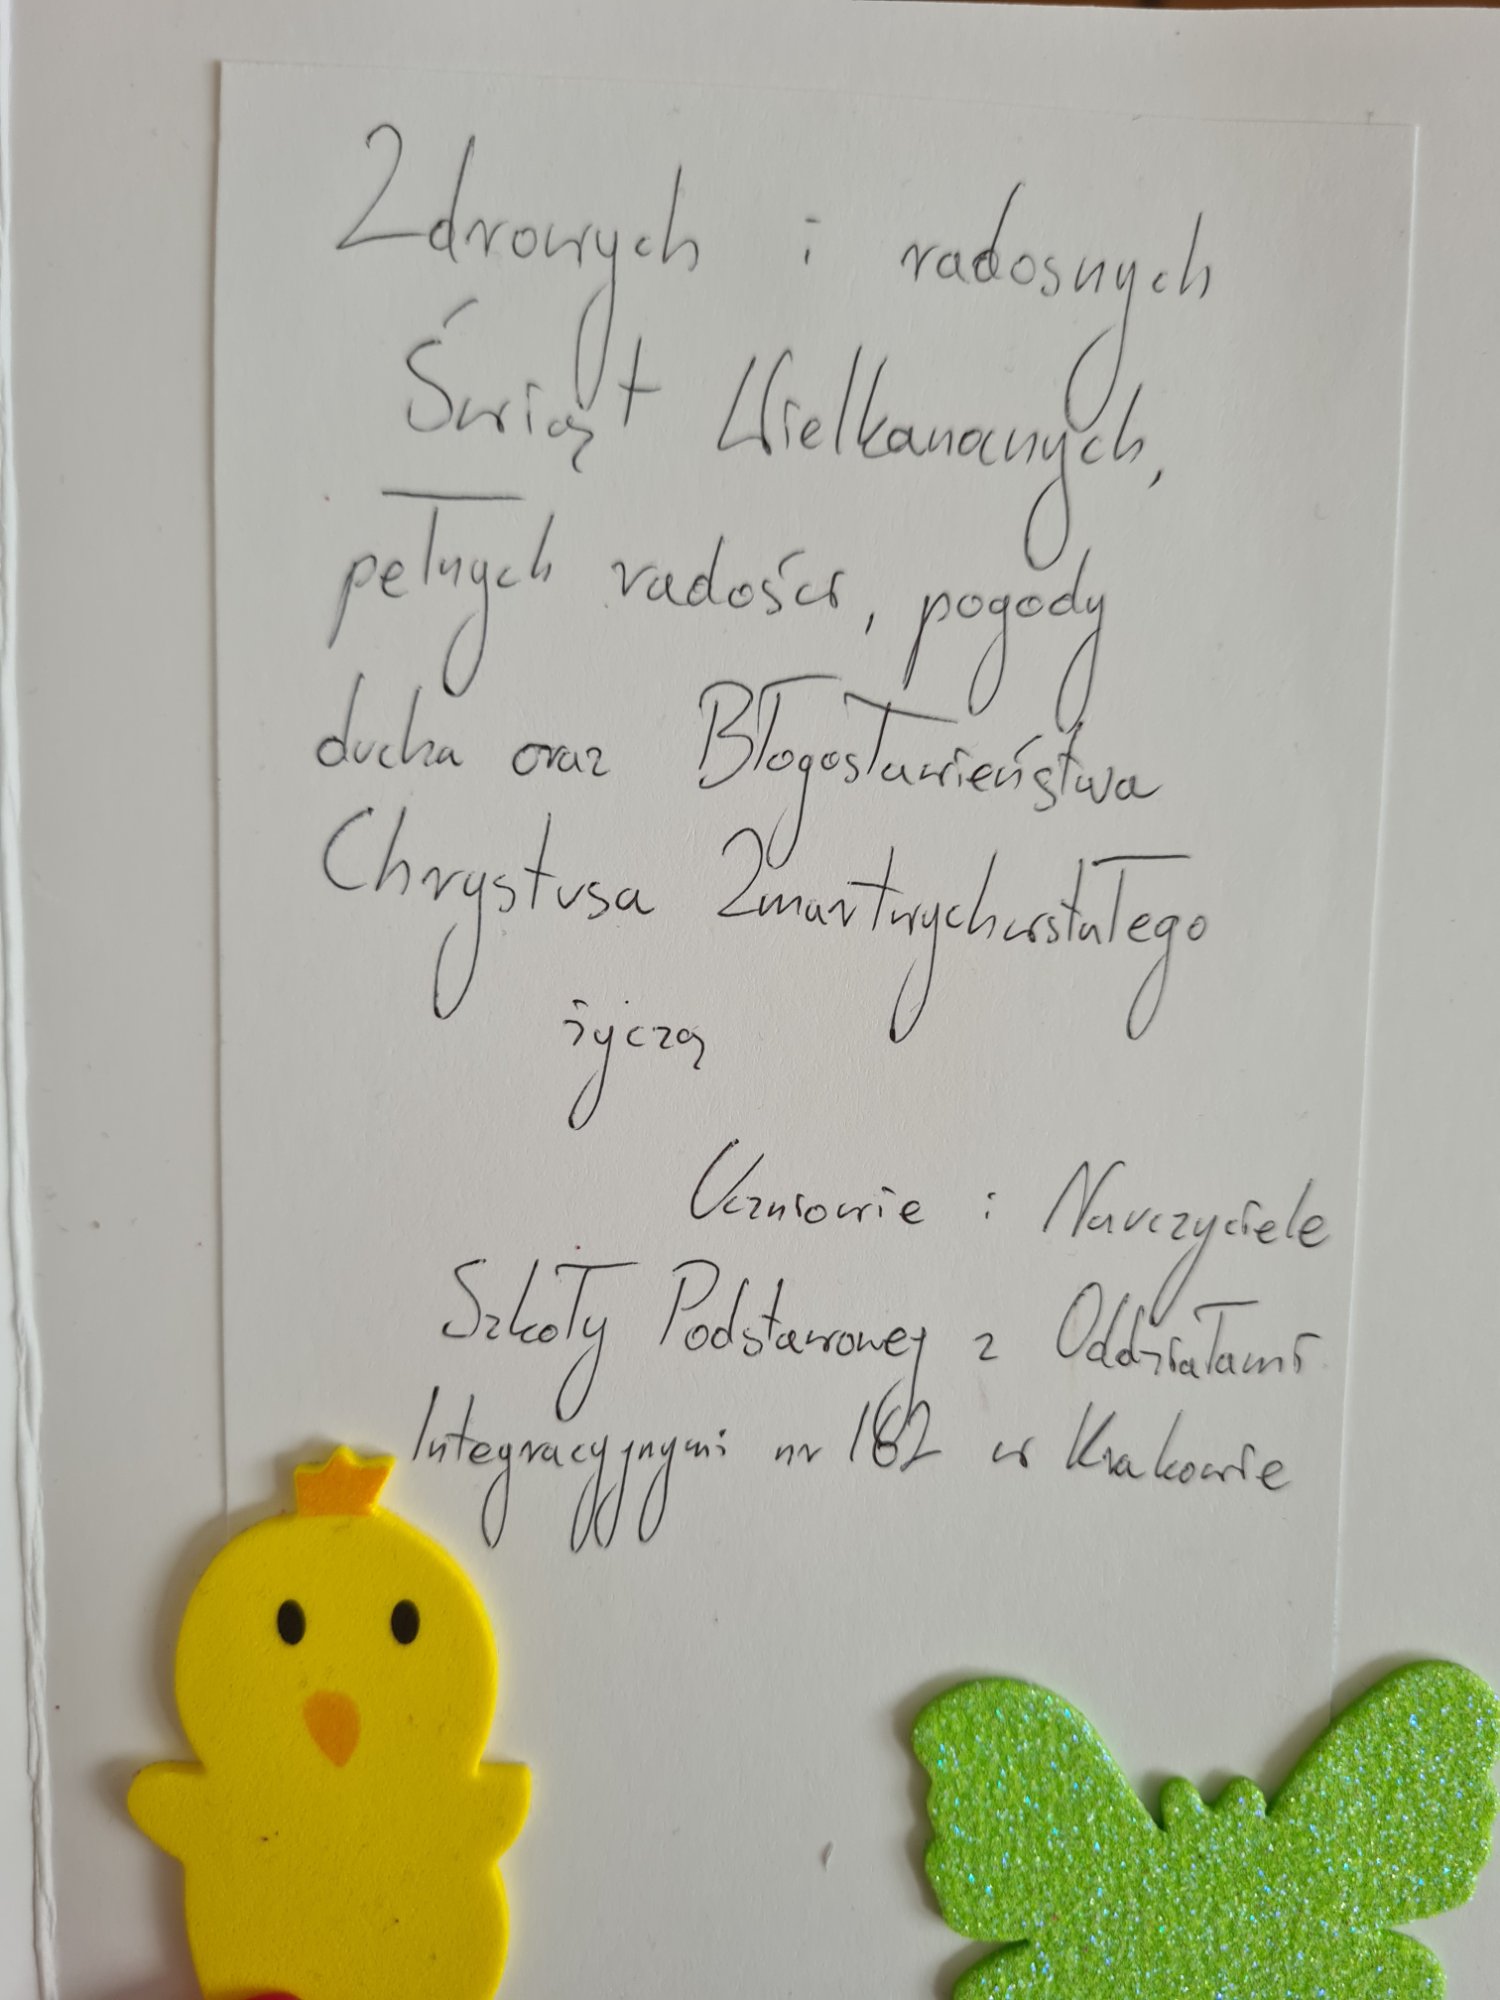 Zdrowych i radosnych
Świąt Wielkanocnych,
pełnych radości, pogody
ducha oraz Błogosławieństwa
Chrystusa Zmartwychwstałego
życzą
Uczniowie i Nauczyciele
Szkoły Podstawowej z Oddziałami
Integracyjnymi nr 162 w Krakowie